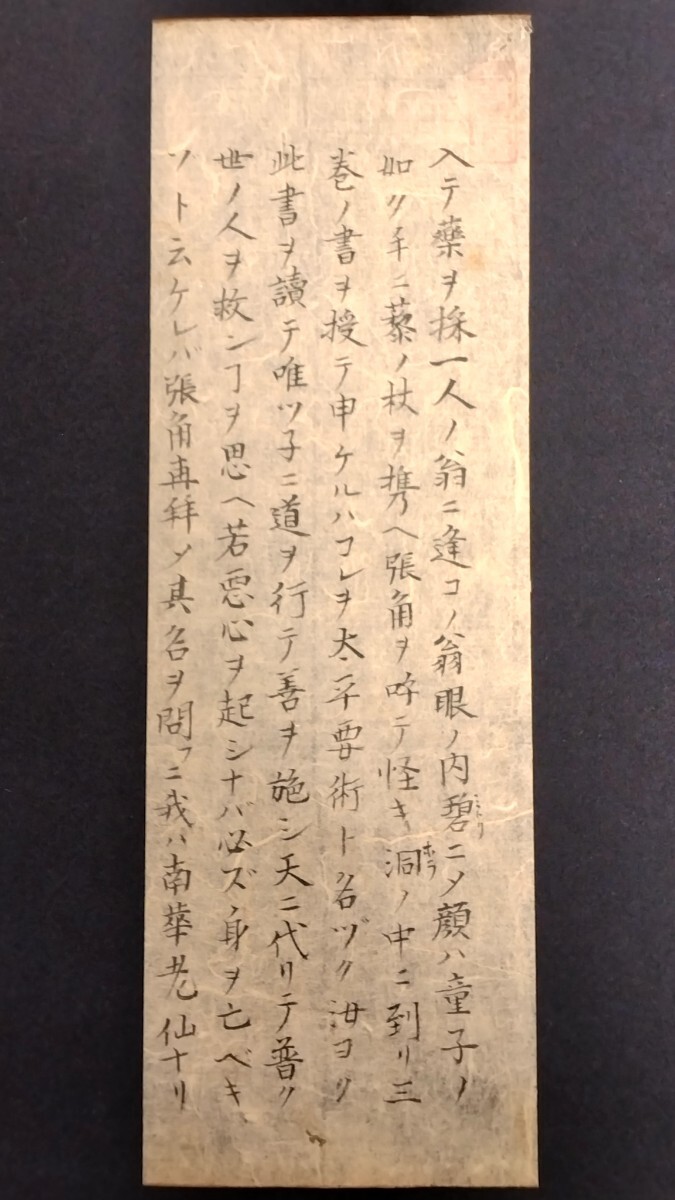 入テ藥ヲ採一人ノ翁ニ逢コノ翁眼ノ内碧ニメ顔ハ童子ノ
如ク手ニ藜ノ杖ヲ携ヘ張角ヲ呼テ怪キ洞ノ中ニ到リ三
巻ノ書ヲ授テ申ケルハコレヲ太平要術ト名ヅク汝ヨク
此書ヲ讀テ唯ツ子ニ道ヲ行テ善ヲ施シ天ニ代リテ普ク
世ノ人ヲ救ンヿヲ思ヘ若悪心ヲ起シナバ必ズ身ヲ亡ベキ
ソト云ケレバ張角再拜メ其名ヲ問フニ我ハ南華老仙ナリ